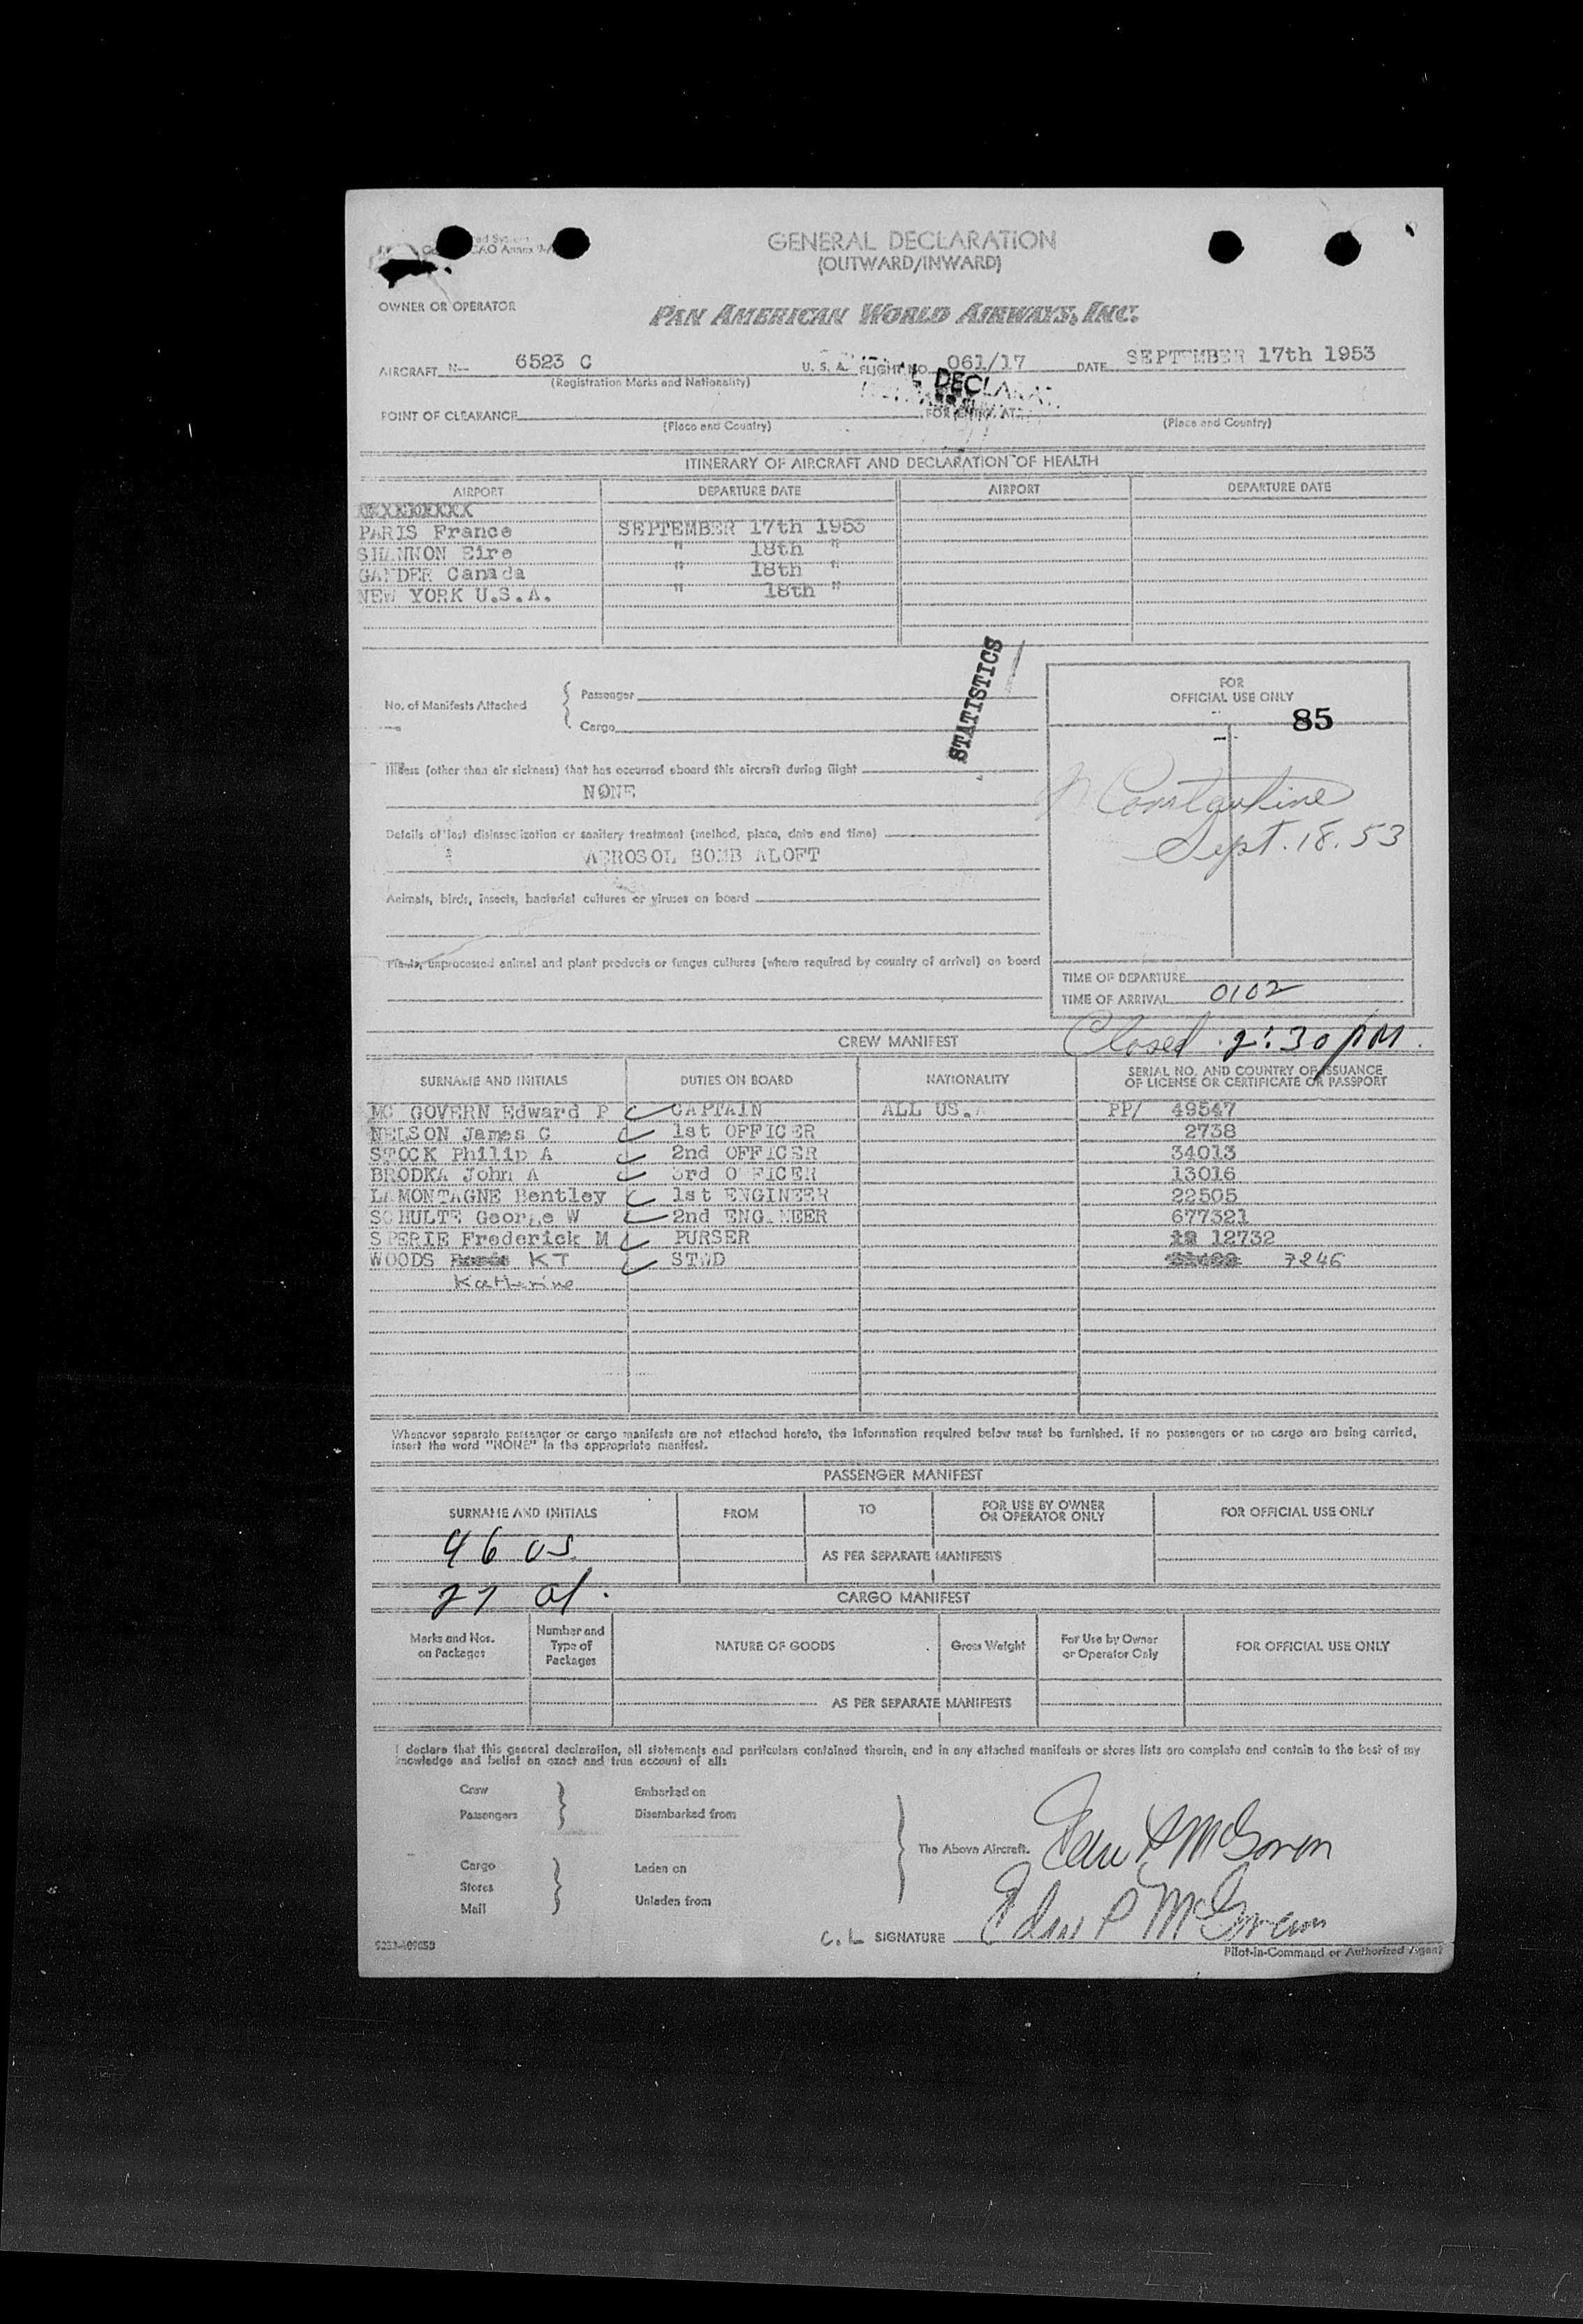 GENERAL DECLARATION
(OUTWARD/INWARD)
OWNER OR OPERATOR PAN AMERICAN WORLD AIRWAYS, INC.
AIRCRAFT N-- 6523 C U. S. A. FLIGHT NO. 061/17 DATE SEPTEMBER 17th 1953
(Registration Marks and Nationality)
DECLARA
POINT OF CLEARANCE FOR ENTRY AT
(Place and Country) (Place and Country)
ITINERARY OF AIRCRAFT AND DECLARATION OF HEALTH
AIRPORT DEPARTURE DATE AIRPORT DEPARTURE DATE
PARIS France SEPTEMBER 17th 1953
SHANNON Eire " 18th "
GANDER Canada " 18th "
NEW YORK U.S.A. " 18th "
STATISTICS
FOR
OFFICIAL USE ONLY
85
No. of Manifests Attached { Passenger
Cargo
Illness (other than air sickness) that has occurred aboard this aircraft during flight
NONE
Constantine
Sept. 18. 53
Details of last disinsectization or sanitary treatment (method, place, date and time)
AEROSOL BOMB ALOFT
Animals, birds, insects, bacterial cultures or viruses on board
Plants, unprocessed animal and plant products or fungus cultures (where required by country of arrival) on board
TIME OF DEPARTURE
TIME OF ARRIVAL 0102
CREW MANIFEST Closed 2:30 PM.
SURNAME AND INITIALS DUTIES ON BOARD NATIONALITY SERIAL NO. AND COUNTRY OF ISSUANCE
OF LICENSE OR CERTIFICATE OR PASSPORT
MC GOVERN Edward P CAPTAIN ALL US.A PP/ 49547
NELSON James C 1st OFFICER 2738
STOCK Philip A 2nd OFFICER 34013
BRODKA John A 3rd OFFICER 13016
LAMONTAGNE Bentley 1st ENGINEER 22505
SCHULTE George W 2nd ENGINEER 677321
SPERIE Frederick M PURSER 12732
WOODS K T STWD 7246
Katherine
Whenever separate passenger or cargo manifests are not attached hereto, the information required below must be furnished. If no passengers or no cargo are being carried,
insert the word "NONE" in the appropriate manifest.
PASSENGER MANIFEST
SURNAME AND INITIALS FROM TO FOR USE BY OWNER
OR OPERATOR ONLY FOR OFFICIAL USE ONLY
46 US
AS PER SEPARATE MANIFESTS
27 al.
CARGO MANIFEST
Marks and Nos.
on Packages Number and
Type of
Packages NATURE OF GOODS Gross Weight For Use by Owner
or Operator Only FOR OFFICIAL USE ONLY
AS PER SEPARATE MANIFESTS
I declare that this general declaration, all statements and particulars contained therein, and in any attached manifests or stores lists are complete and contain to the best of my
knowledge and belief an exact and true account of all:
Crew Embarked on
Passengers Disembarked from
The Above Aircraft. Edw P McGovern
Cargo Laden on
Stores
Mail Unladen from
C. L SIGNATURE Edw P McGovern
Pilot-in-Command or Authorized Agent